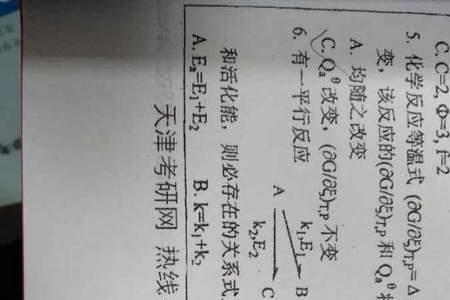 C. C=2, Φ=3, f=2
5. 化学反应等温式 (∂G/∂ξ)T,P=Δ
变，该反应的(∂G/∂ξ)T,P 和 Qaθ
A. 均随之改变
C. Qaθ 改变，(∂G/∂ξ)T,P 不变
6. 有一平行反应
A
k1,E1
B
k2,E2
C
和活化能，则必存在的关系式
A. Ea=E1+E2 B. k=k1+k2
天津考研网 热线